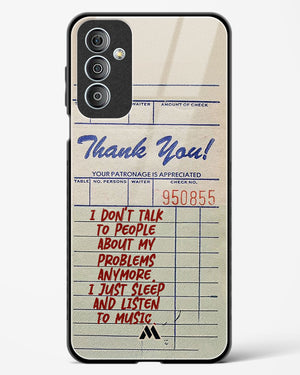 WAITER AMOUNT OF CHECK
Thank You!
YOUR PATRONAGE IS APPRECIATED
TABLE NO. PERSONS WAITER CHECK NO.
950855
I DON'T TALK
TO PEOPLE
ABOUT MY
PROBLEMS
ANYMORE.
I JUST SLEEP
AND LISTEN
TO MUSIC